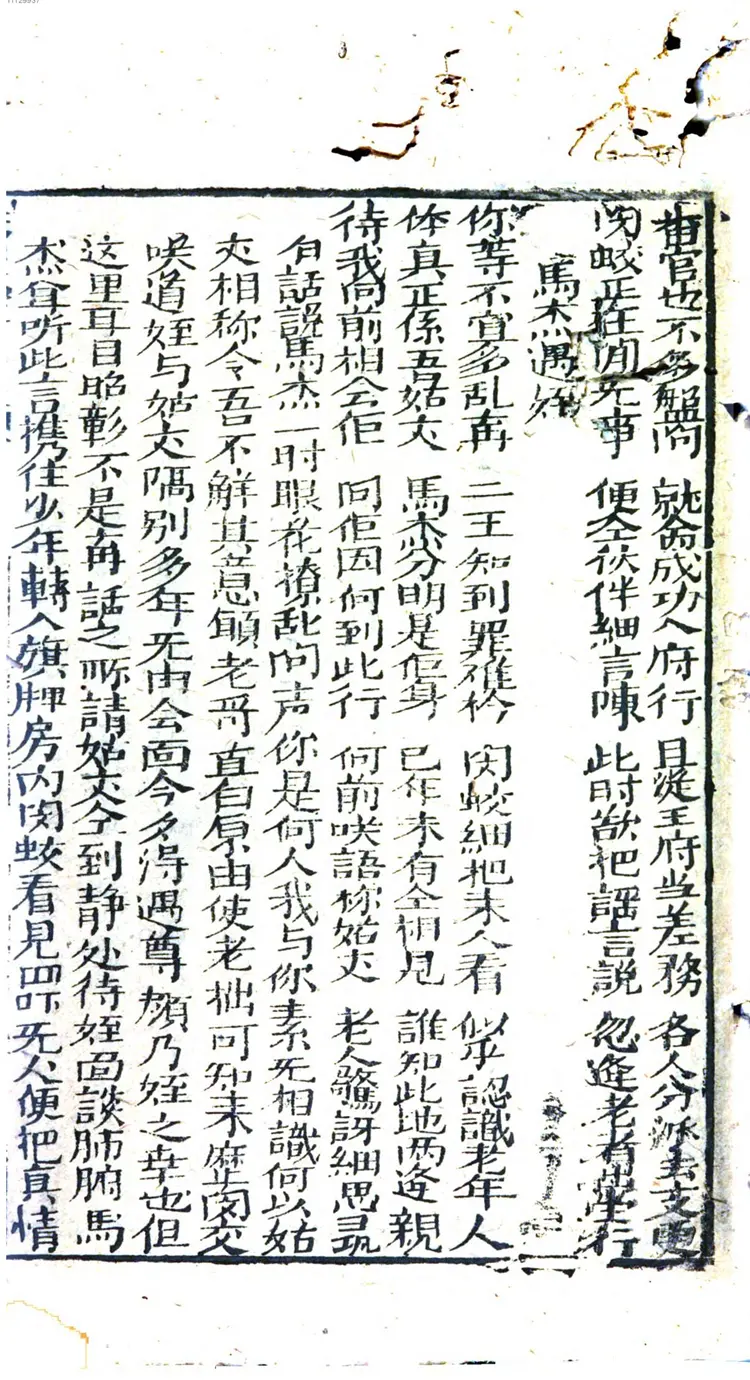 黄官也不多盤問 就命成功入府行 且從王府当差務 各人分派去支更
関蛟正在閒死事 便仝伙伴細言陳 此时欲把謡言説 忽逢老者出堂行
馬杰遇姪
你等不宜多乱再 二王知到罪难衿 関蛟細把来人看 似乎認識老年人
俫真正係吾姑丈 馬杰分明是佢身 已年未有仝相見 誰知此地両逢親
待我向前相会佢 问佢因何到此行 何前咲語称姑丈 老人驚訝細思尋
有話說馬杰一时眼花撩乱问声你是何人我与你素死相識何以姑
丈相称令吾不解其意願老哥直白原由使老拙可知来歴関交
咲道姪与姑丈隔别多年死由会面今夕得遇尊顔乃姪之幸也但
这里耳目昭彰不是再話之所請姑丈仝到静处待姪面談肺腑馬
杰耳听此言携住少年轉入旗牌房内関蛟看見四吓死人便把真情